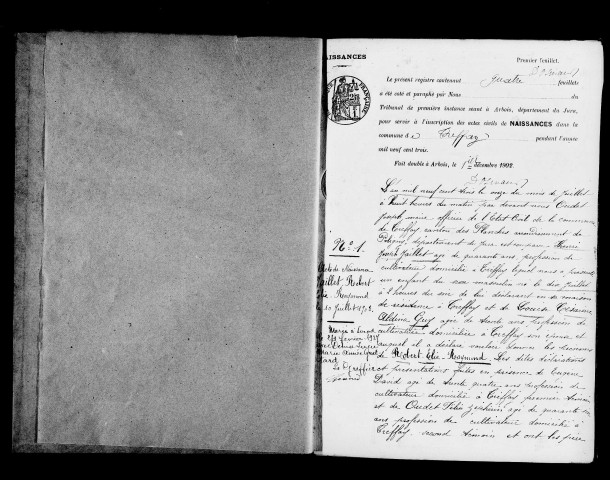 NAISSANCES
Premier feuillet.
Le présent registre contenant quatre feuillets
a été coté et paraphé par Nous du
Tribunal de première instance séant à Arbois, département du Jura,
pour servir à l'inscription des actes civils de NAISSANCES dans la
commune de Treffay pendant l'année
mil neuf cent trois.
Fait double à Arbois, le décembre 1902.
L'an mil neuf cent trois le onze du mois de juillet
à huit heures du matin par devant nous Oudet
Joseph maire officier de l'Etat Civil de la commune
de Treffay canton des Planches arrondissement de
Poligny, département du Jura est comparu Henri
Joseph Jaillet âgé de quarante ans profession de
cultivateur domicilié à Treffay lequel nous a présenté
un enfant du sexe masculin né le dix juillet
à 2 heures du soir de lui déclarant en sa maison
de résidence à Treffay et de Louise Césarine
Aldine Guy âgée de trente ans profession de
cultivatrice domiciliée à Treffay son épouse et
auquel il a déclaré vouloir donner les prénoms
de Robert Elie Raymond. Les dites déclarations
et présentations faites en présence de Eugène
David âgé de trente quatre ans profession de
cultivateur domicilié à Treffay premier témoin
et de Oudet Félix âgé de quarante
ans profession de cultivateur domicilié à
Treffay second témoin et ont les père
N° 1.
Acte de Naissance
Jaillet Robert
Elie Raymond
le 10 juillet 1903.
Marié à
Le Greffier